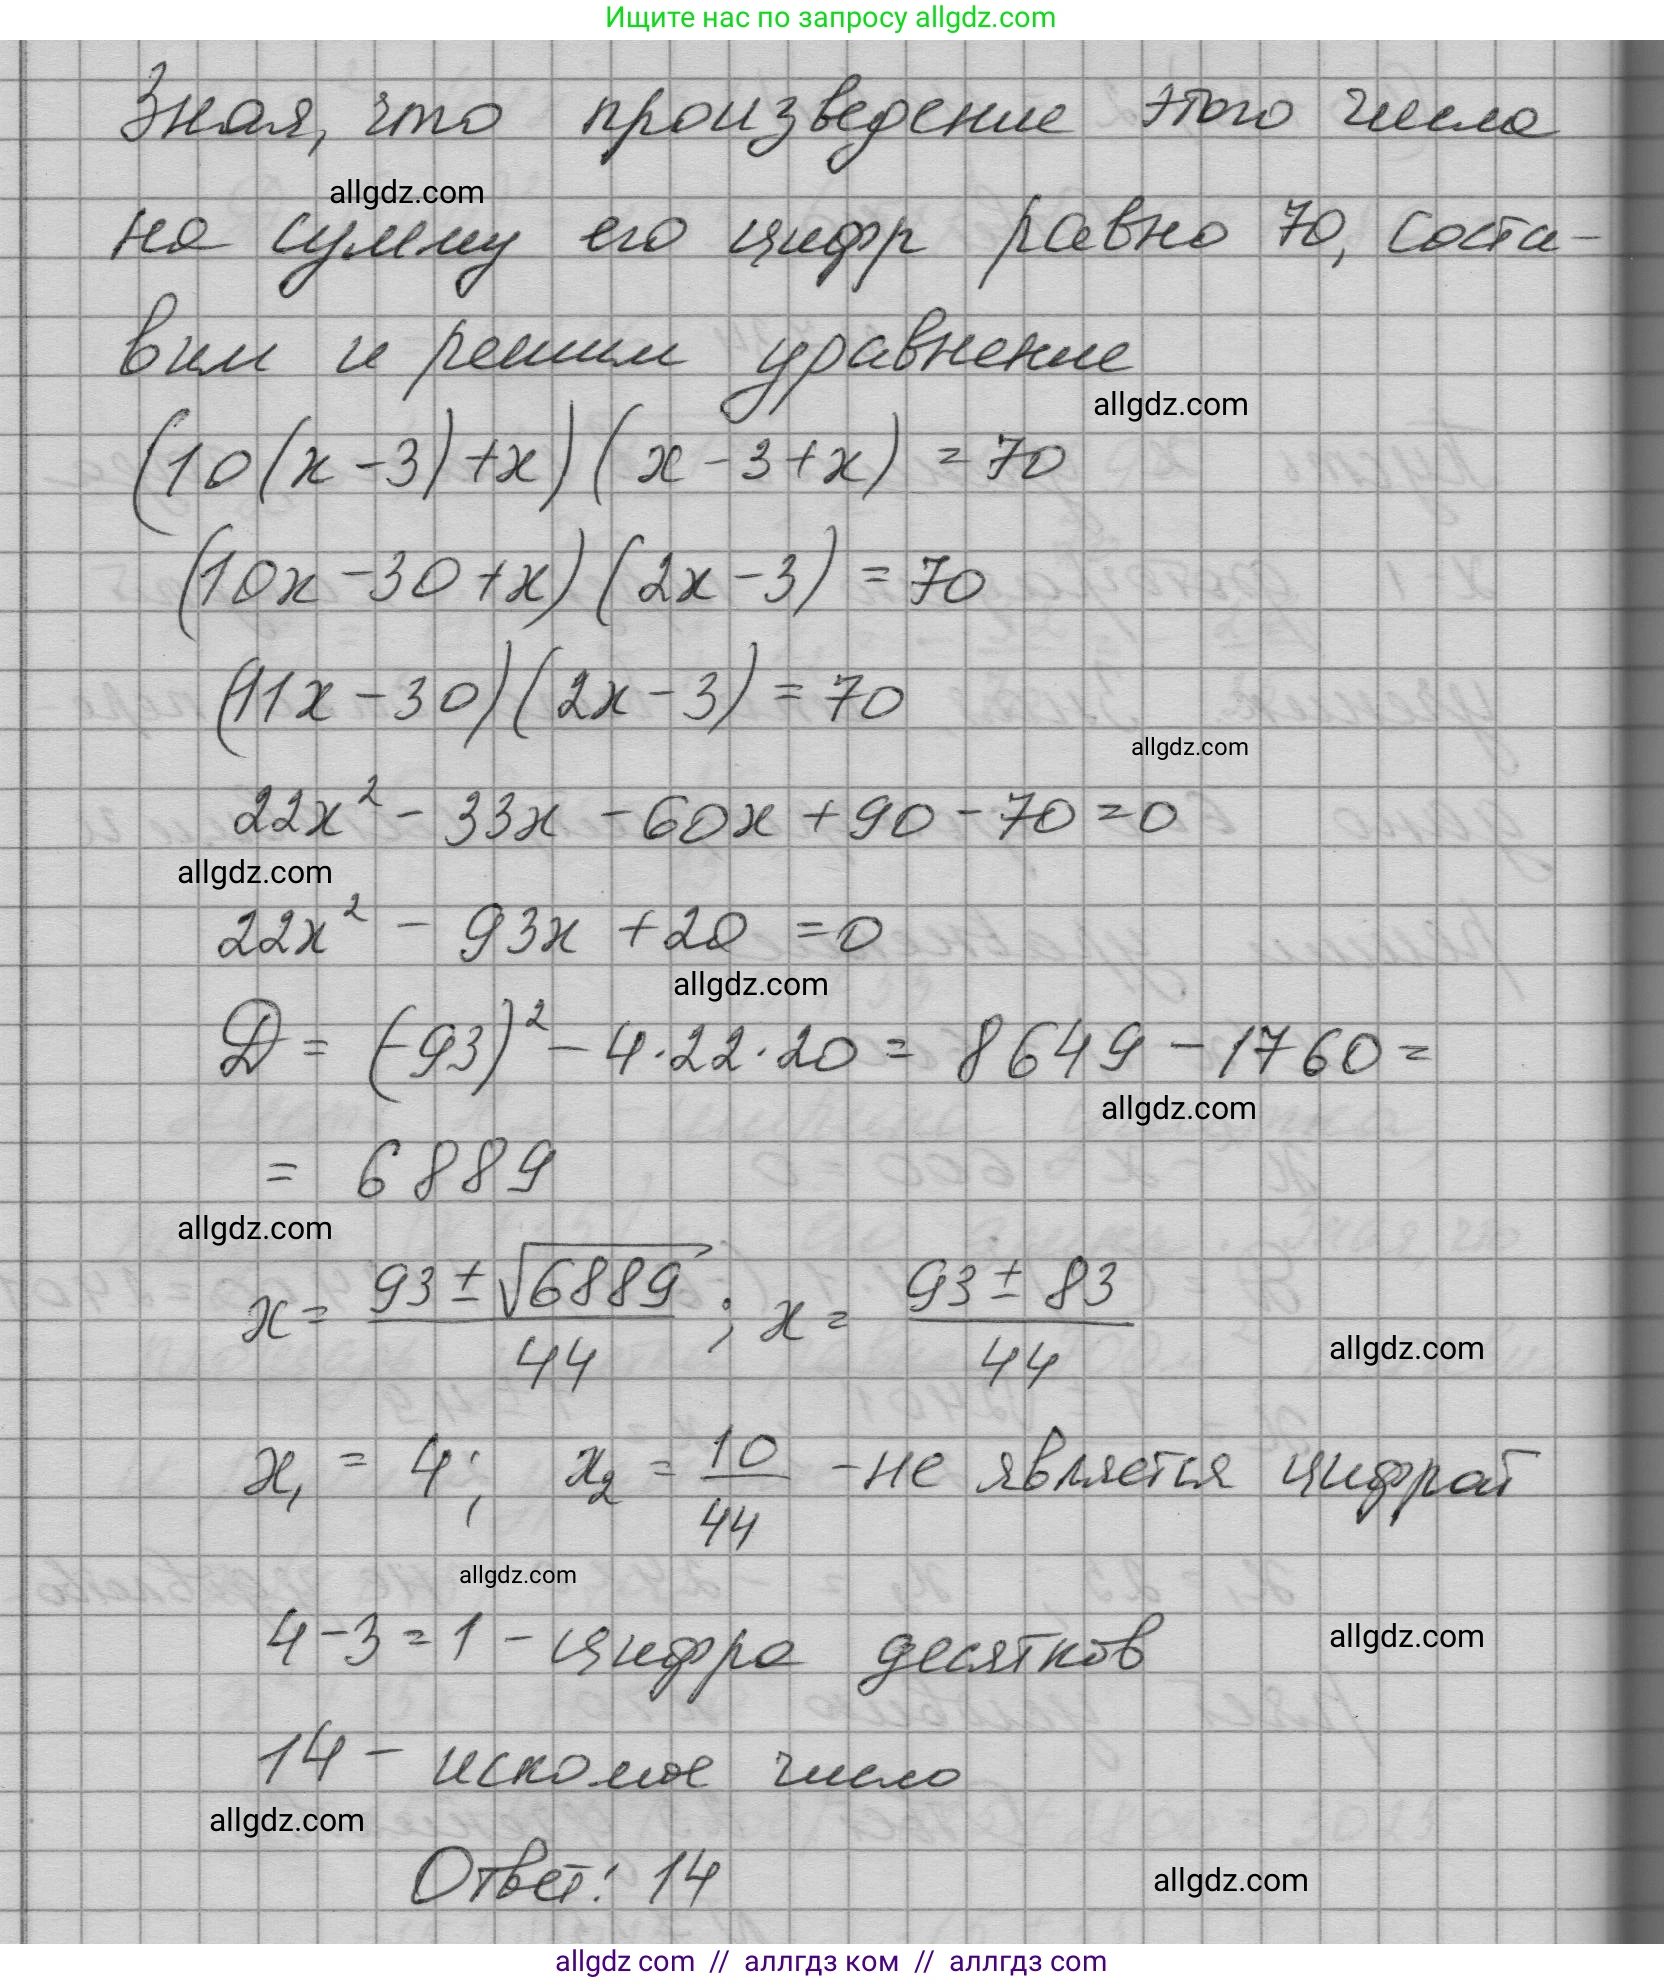 Ищите нас по запросу allgdz.com
Зная, что произведение этого числа
allgdz.com
на сумму его цифр равно 70, соста-
вим и решим уравнение
allgdz.com
(10(x-3)+x)(x-3+x)=70
(10x-30+x)(2x-3)=70
(11x-30)(2x-3)=70
allgdz.com
22x²-33x-60x+90-70=0
allgdz.com
22x²-93x+20=0
allgdz.com
Д=(-93)²-4·22·20=8649-1760=
allgdz.com
=6889
allgdz.com
x=93±√6889/44; x=93±83/44
allgdz.com
x₁=4; x₂=10/44 -не является цифрой
allgdz.com
4-3=1-цифра десятков
allgdz.com
14- искомое число
allgdz.com
Ответ: 14
allgdz.com
allgdz com // аллгдз ком // аллгдз com